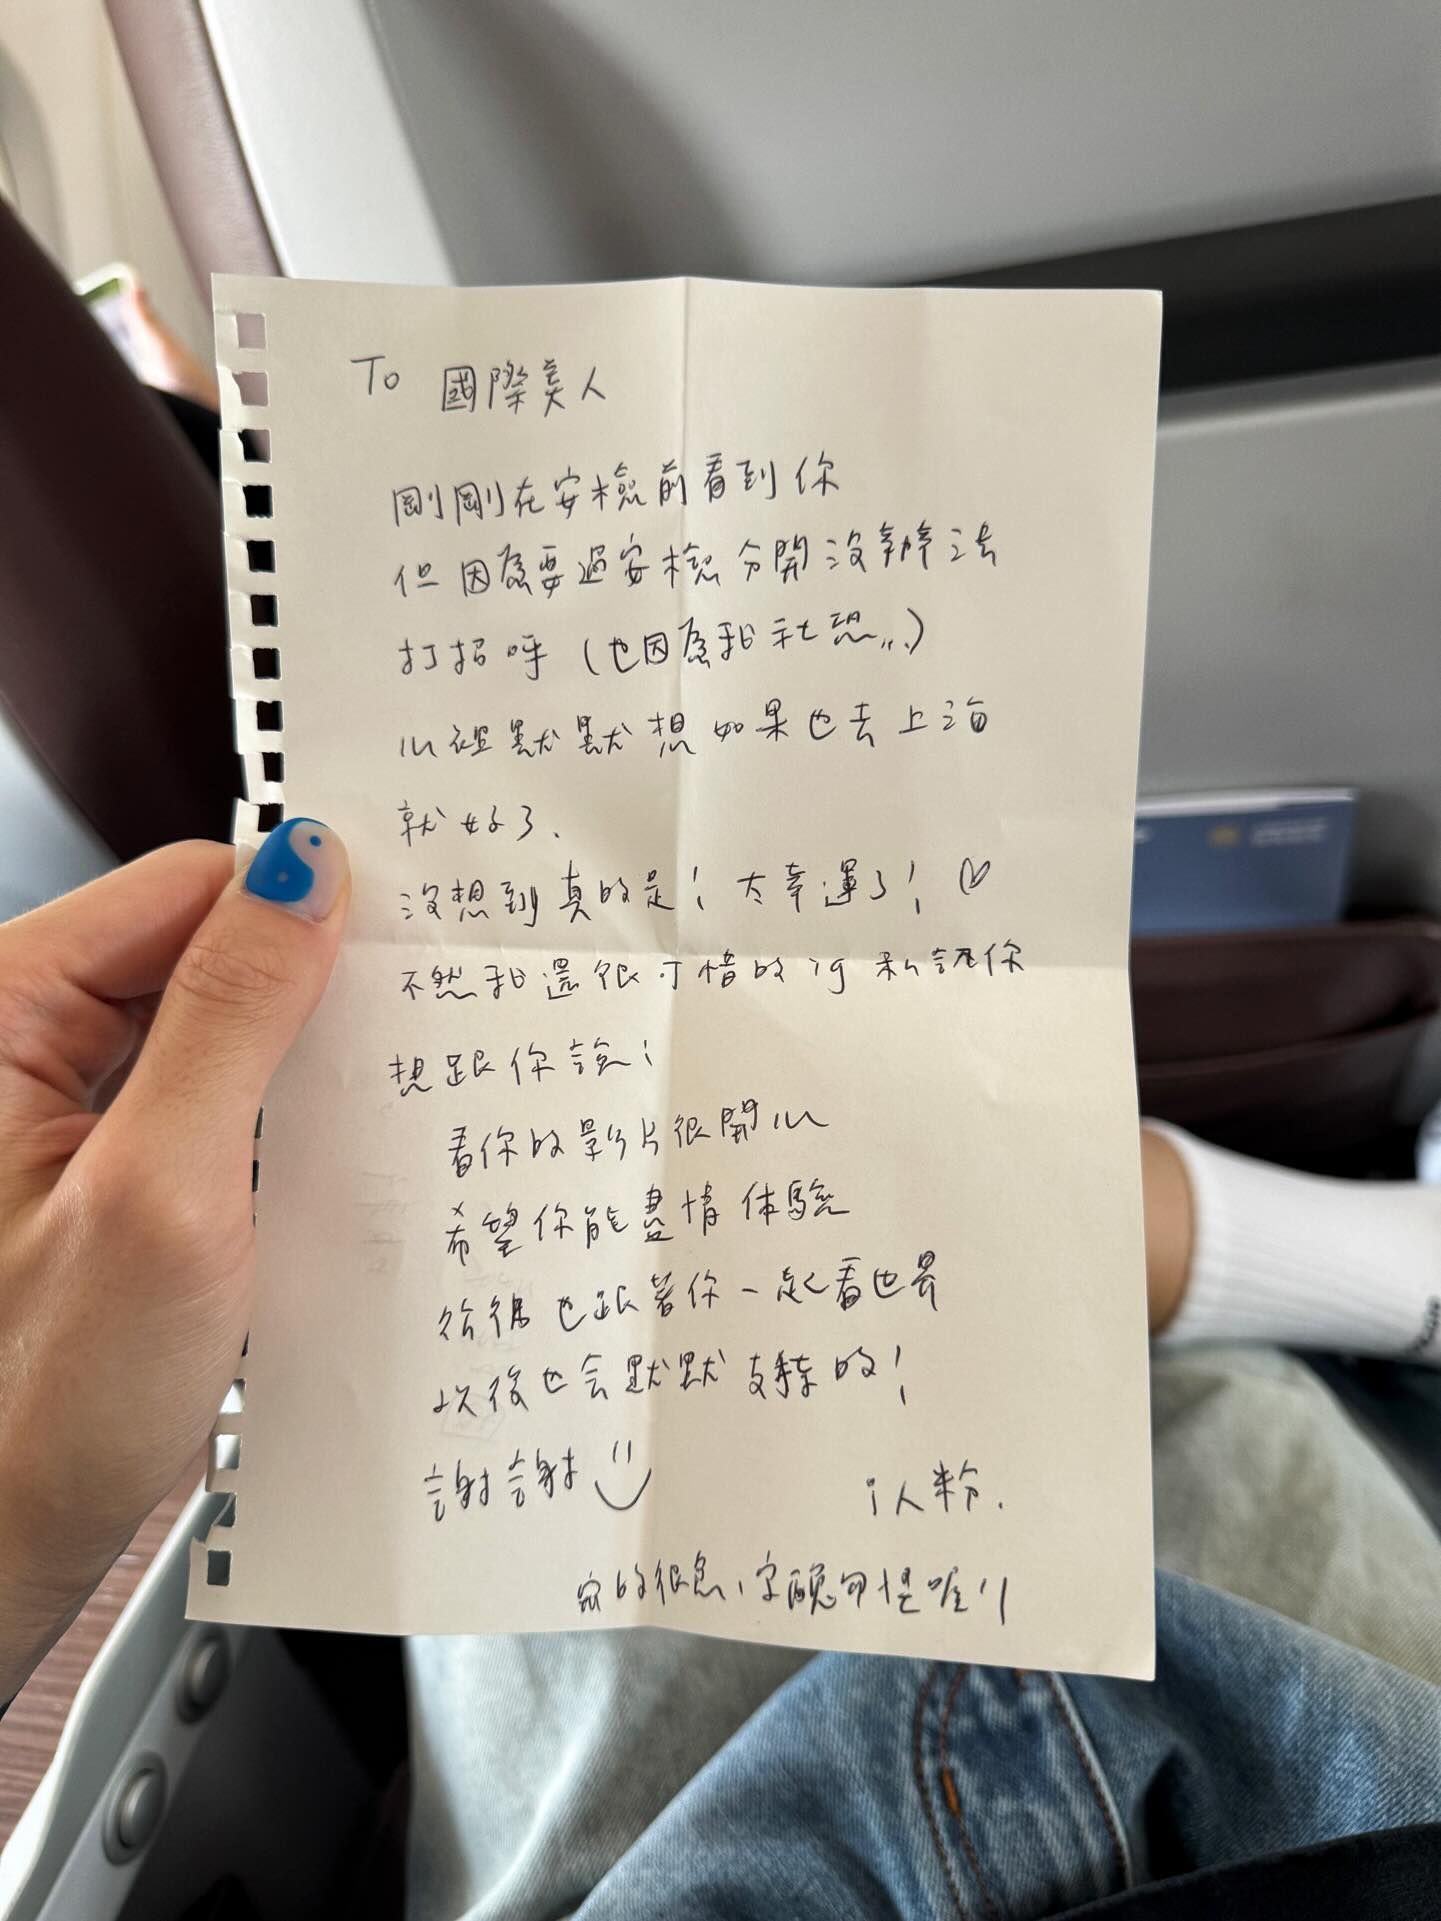 To 國際美人
剛剛在安檢前看到你
但因為要過安檢分開沒辦法
打招呼（也因為我社恐...）
心裡默默想如果也去上海
就好了.
沒想到真的是! 太幸運了! ♡
不然我還很可惜的 ig 私訊你
想跟你說:
看你的影片很開心
希望你能盡情體驗
後也跟著你一起看世界
以後也會默默支持的!
謝謝
i人粉.
寫的很急,字醜可怪喔